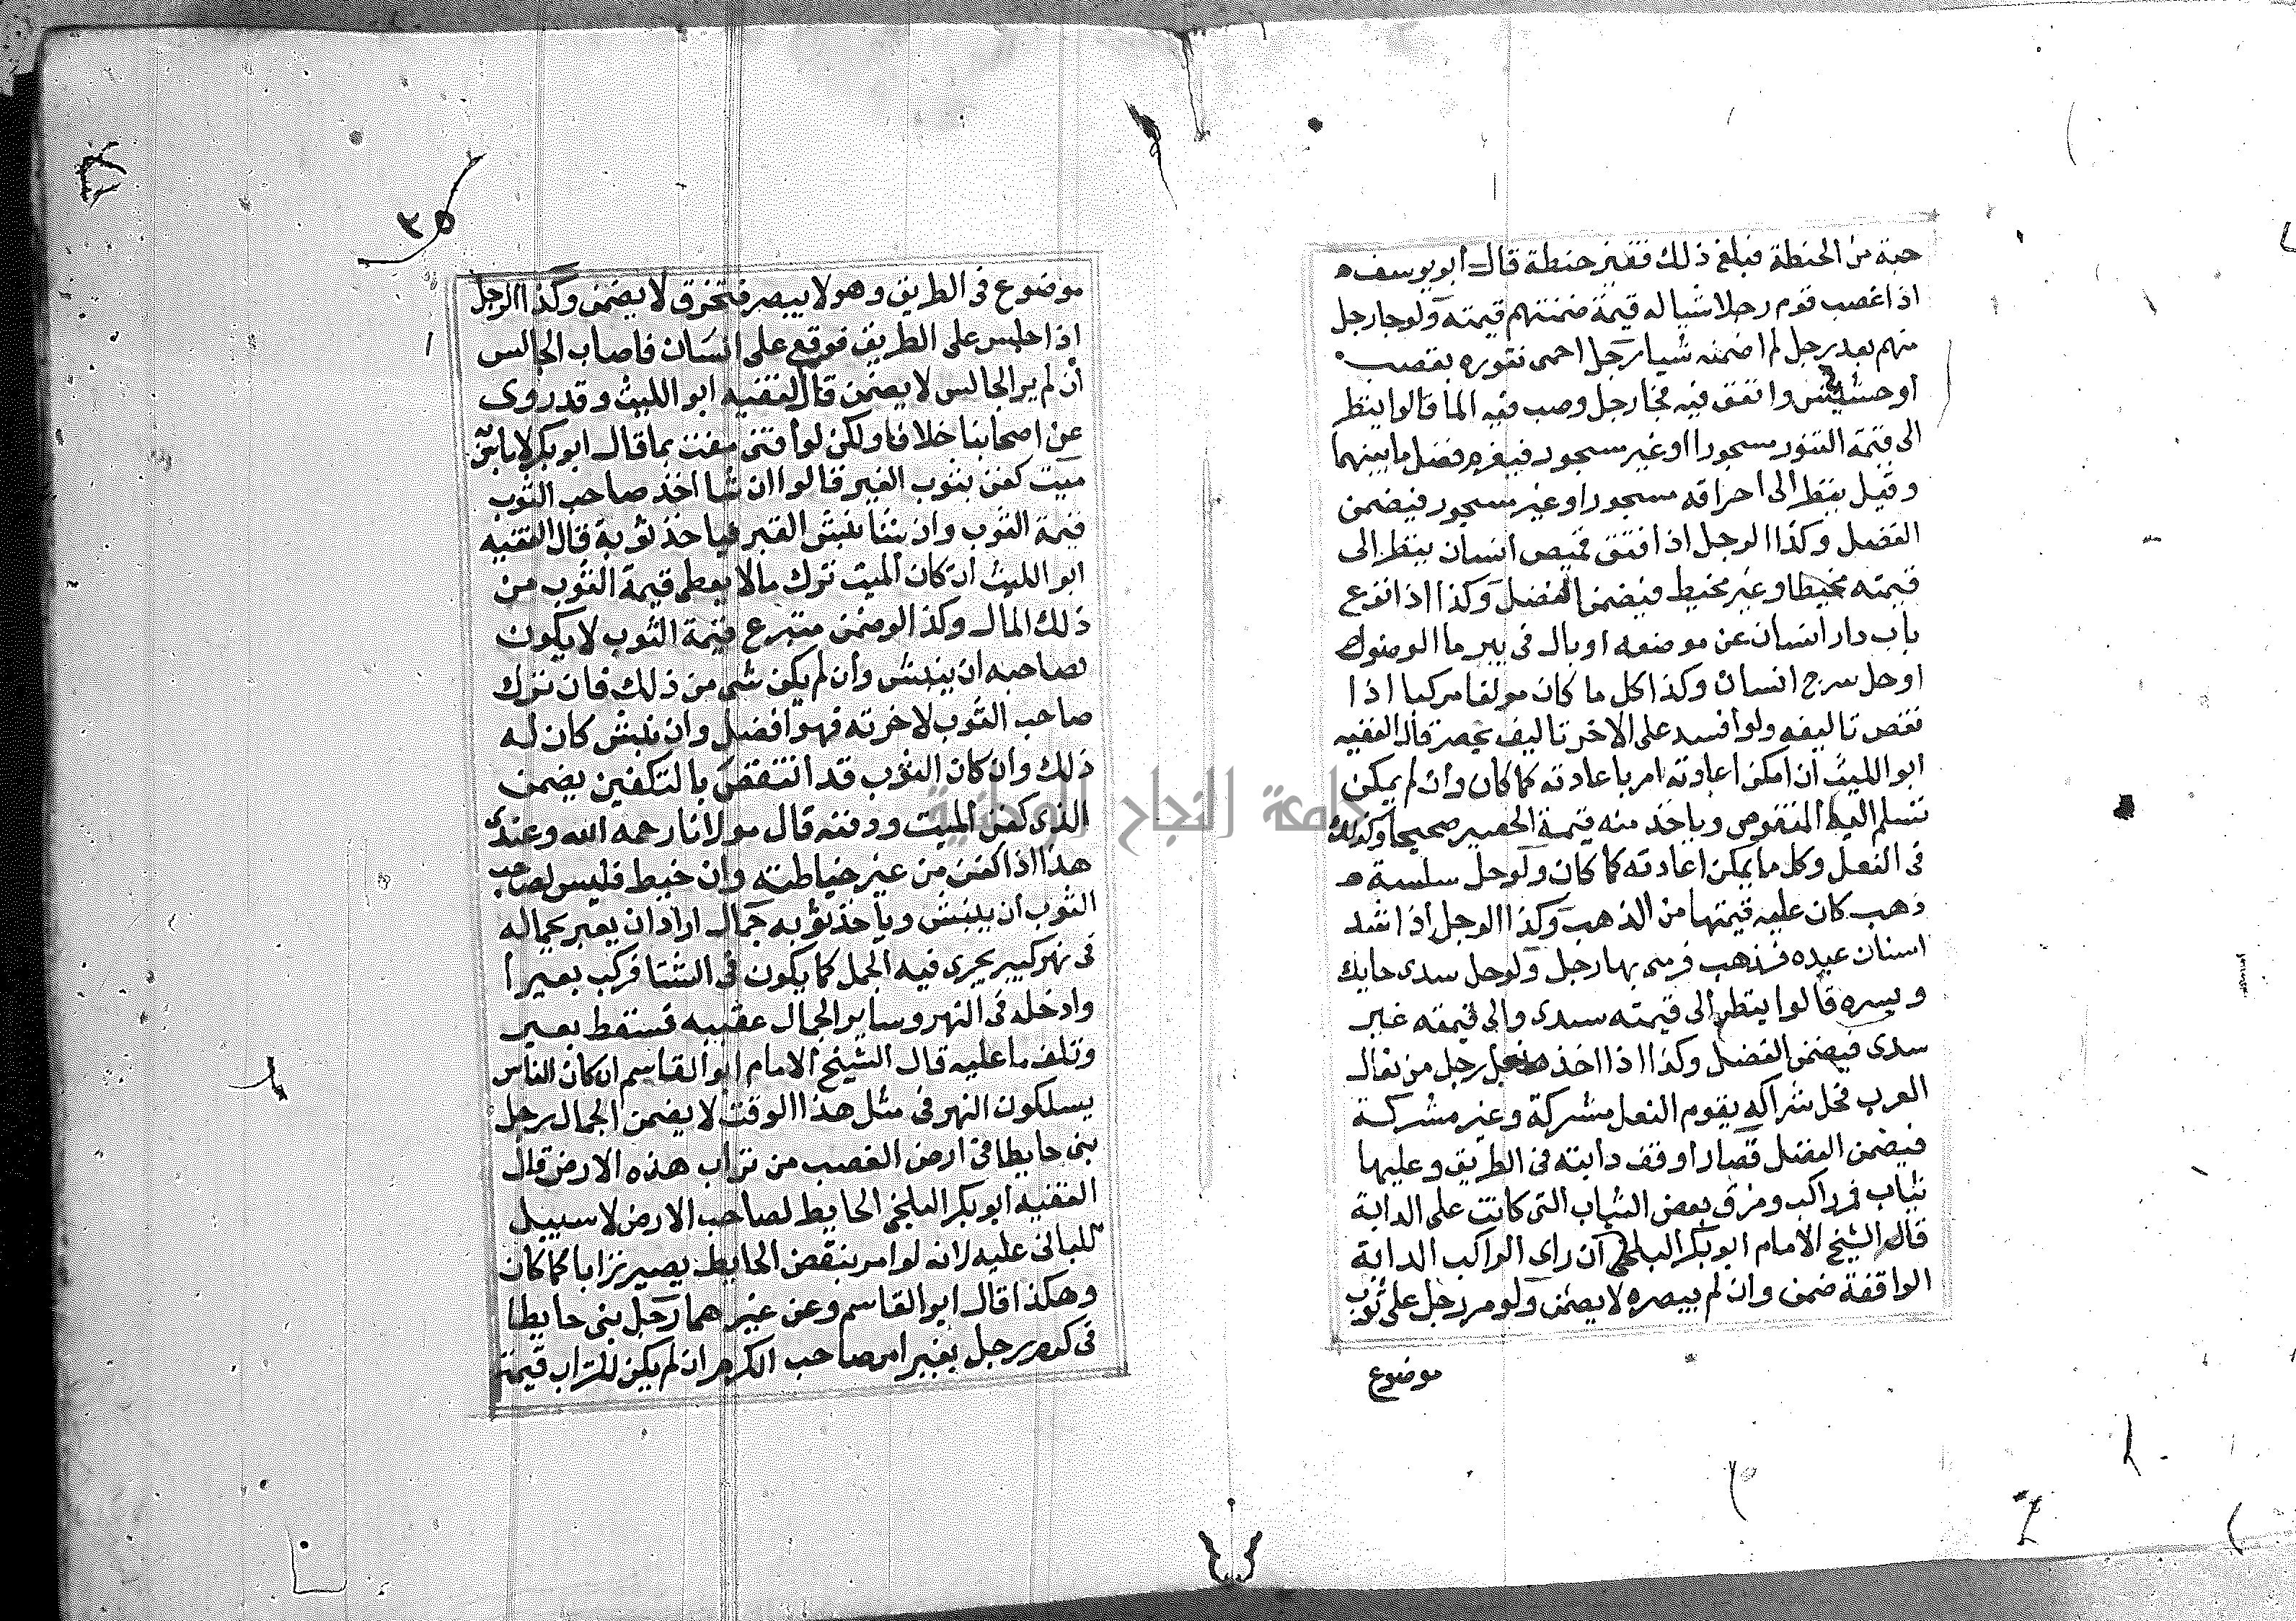 حبة من الحنطة فبلغ ذلك قفيز حنطة قال أبو يوسف
اذا غصب قوم رجلا شيا له قيمة ضمنتهم قيمته ولو جا رجل
منهم بعد رجل لم اضمنه شيا رجل احمى تنوره بقصب
أو حشيش وانفق فيه فجا رجل وصب فيه الما قالوا ينظر
الى قيمة التنور مسجورا او غير مسجور فيغرم فضل ما بينهما
وقيل ينظر الى احراقه مسجورا وغير مسجور فيضمن
الفضل وكذا الرجل اذا فتق قميص انسان ينظر الى
قيمته مخيطا وغير مخيط فيضمن الفضل وكذا اذا انزع
باب دار انسان عن موضعه او بال في بير ما الوضوء
او حل سرج انسان وكذا كل ما كان مولفا مركبا اذا
نقض تاليفه ولو أفسد على الاخر تاليف حصير قال الفقيه
ابو الليث ان امكن اعادته امر باعادته كما كان وان لم يمكن
تسلم اليه المنقوض وياخذ منه قيمة الحصير صحيحا وكذلك
في النعل وكل ما يمكن اعادته كما كان ولو حل سلسلة
ذهب كان عليه قيمتها من الذهب وكذا الرجل اذا شد
اسنان عبده بذهب فرمى بها رجل ولو حل سدى حايك
ويسره قالوا ينظر الى قيمته سدى والى قيمته غير
سدى فيضمن الفضل وكذا اذا اخذ نعل رجل من نعال
العرب فحل شراكه يقوم النعل مشركة وغير مشركة
فيضمن الفضل قصار أوقف دابته في الطريق وعليها
ثياب فمر راكب ومزق بعض الثياب التي كانت على الدابة
قال الشيخ الامام ابو بكر البلخي ان راى الراكب الدابة
الواقفة ضمن وان لم يبصره لا يضمن ولو مر رجل على ثوب
موضوع
٣٥
موضوع في الطريق وهو لا يبصر فتخرق لا يضمن وكذا الرجل
اذا جلس على الطريق فوقع على انسان فاصاب الجالس
أن لم ير الجالس لا يضمن قال الفقيه ابو الليث وقد روى
عن اصحابنا خلافا ولكن لو أفتى مفت بما قال ابو بكر لا باس
ميت كفن بثوب الغير قالوا ان شا اخذ صاحب الثوب
قيمة الثوب وان شا نبش القبر فياخذ ثوبه قال الفقيه
ابو الليث ان كان الميت ترك مالا يعطى قيمة الثوب من
ذلك المال وكذا لو ضمن متبرع قيمة الثوب لا يكون
لصاحبه ان ينبش وأن لم يكن شى من ذلك فان ترك
صاحب الثوب لاخرته فهو افضل وان نبش كان له
ذلك وان كان الثوب قد انتقص بالتكفين يضمن
الذى كفن الميت ودفنه قال مولانا رحمه الله وعندى
هذا اذا كفن من غير خياطته وان خيط فليس لصاحب
الثوب أن ينبش وياخذ ثوبه جمال اراد ان يعبر بجماله
في نهر كبير يجرى فيه الجمل كما يكون في الشتا فركب بعيرا
وادخله في النهر وساير الجمال عقيبه فسقط بعير
وتلف ما عليه قال الشيخ الامام ابو القاسم ان كان الناس
يسلكون النهر في مثل هذا الوقت لا يضمن الجمال رجل
بنى حايطا في ارض الغصب من تراب هذه الارض قال
الفقيه أبو بكر البلخي الحايط لصاحب الارض لا سبيل
للبانى عليه لانه لو امر بنقض الحايط يصير ترابا كما كان
وهكذا قال ابو القاسم وعن غيرهما رجل بنى حايطا
في كرم رجل بغير امر صاحب الكرم ان لم يكن للتراب قيمة
جامعة النجاح الوطنية